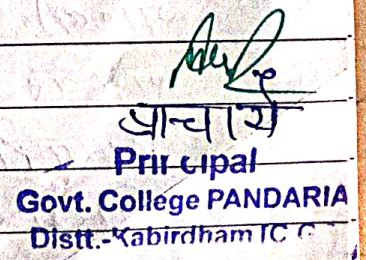 प्राचार्य
Principal
Govt. College PANDARIA
Distt.-Kabirdham (C.G.